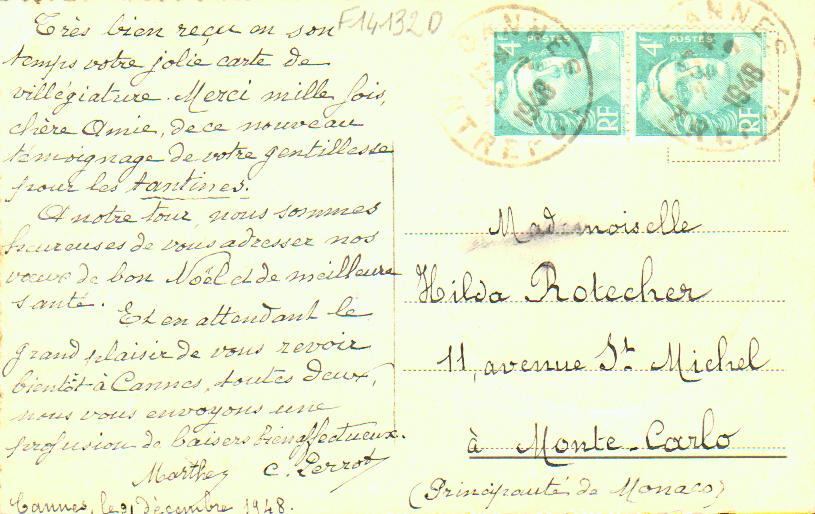 F14132D
Très bien reçu en son
temps votre jolie carte de
villégiature. Merci mille fois,
chère Amie, de ce nouveau
témoignage de votre gentillesse
pour les tantines.
A notre tour, nous sommes
heureuses de vous adresser nos
vœux de bon Noël et de meilleure
santé.
Et en attendant le
grand plaisir de vous revoir
bientôt à Cannes, toutes deux,
nous vous envoyons une
profusion de baisers bien affectueux.
Marthe C. Perrot
Cannes, le 21 décembre 1948.
CANNES
1948
POSTES
4F
RF
CANNES
1948
POSTES
4F
RF
Mademoiselle
Hilda Rotecher
11, avenue St Michel
à Monte-Carlo
(Principauté de Monaco)